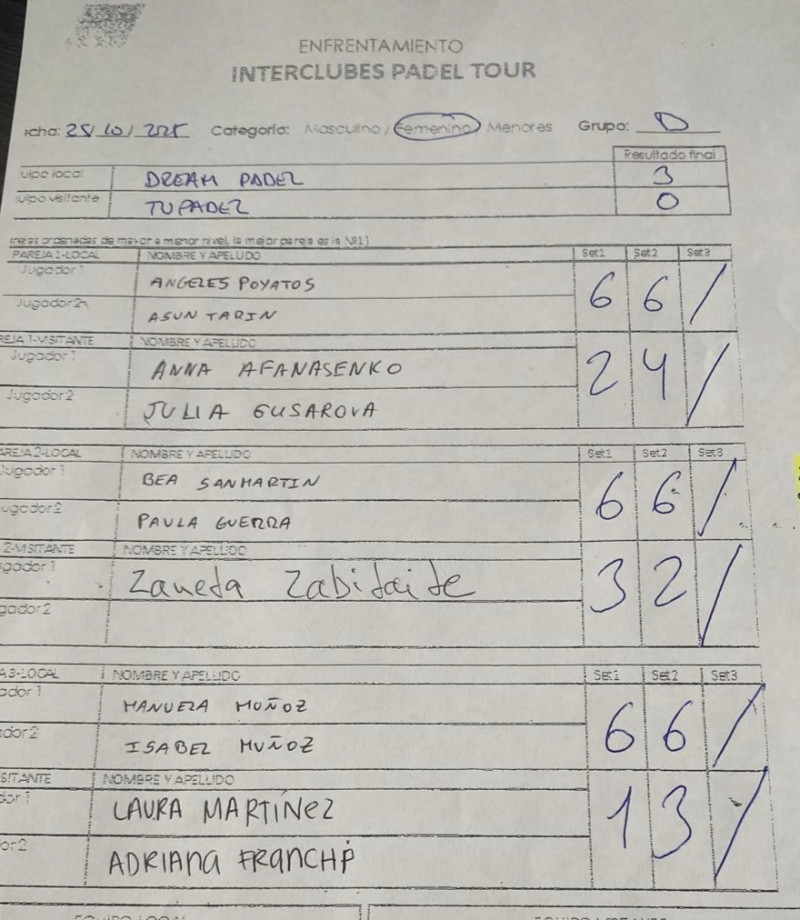 ENFRENTAMIENTO
INTERCLUBES PADEL TOUR
echa: 25/10/2025 Categoría: Masculino / Femenino / Menores Grupo: D
Resultado final
uipo local DREAM PADEL 3
uipo visitante TUPADEL 0
rejas ordenadas de mayor a menor nivel, la mejor pareja es la Nº1)
PAREJA 1-LOCAL NOMBRE Y APELLIDO Set1 Set2 Set3
Jugador 1 ANGELES POYATOS 6 6 /
Jugador 2 ASUN TARIN
REJA 1-VISITANTE NOMBRE Y APELLIDO
Jugador 1 ANNA AFANASENKO 2 4 /
Jugador 2 JULIA GUSAROVA
AREJA 2-LOCAL NOMBRE Y APELLIDO Set1 Set2 Set3
Jugador 1 BEA SANMARTIN 6 6 /
ugador 2 PAULA GUERRA
2-VISITANTE NOMBRE Y APELLIDO
gador 1 Zaneta Zabitaite 3 2 /
gador 2
A 3-LOCAL NOMBRE Y APELLIDO Set1 Set2 Set3
ador 1 MANUELA MUÑOZ 6 6 /
dor 2 ISABEL MUÑOZ
SITANTE NOMBRE Y APELLIDO
dor 1 LAURA MARTÍNEZ 1 3 /
or 2 ADRIANA
EQUIPO LOCAL